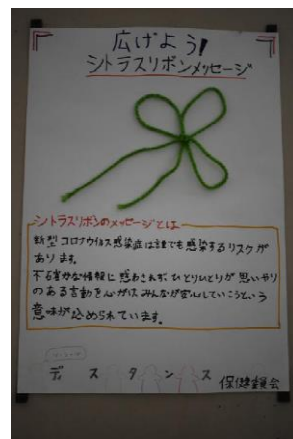 広げよう!
シトラスリボンメッセージ
シトラスリボンのメッセージとは
新型コロナウイルス感染症は誰でも感染するリスクが
あります。
不確かな情報に惑わされず、ひとりひとりが思いやり
のある言動を心がけ、みんなが安心していこうという
意味が込められています。
ディスタンス
保健委員会